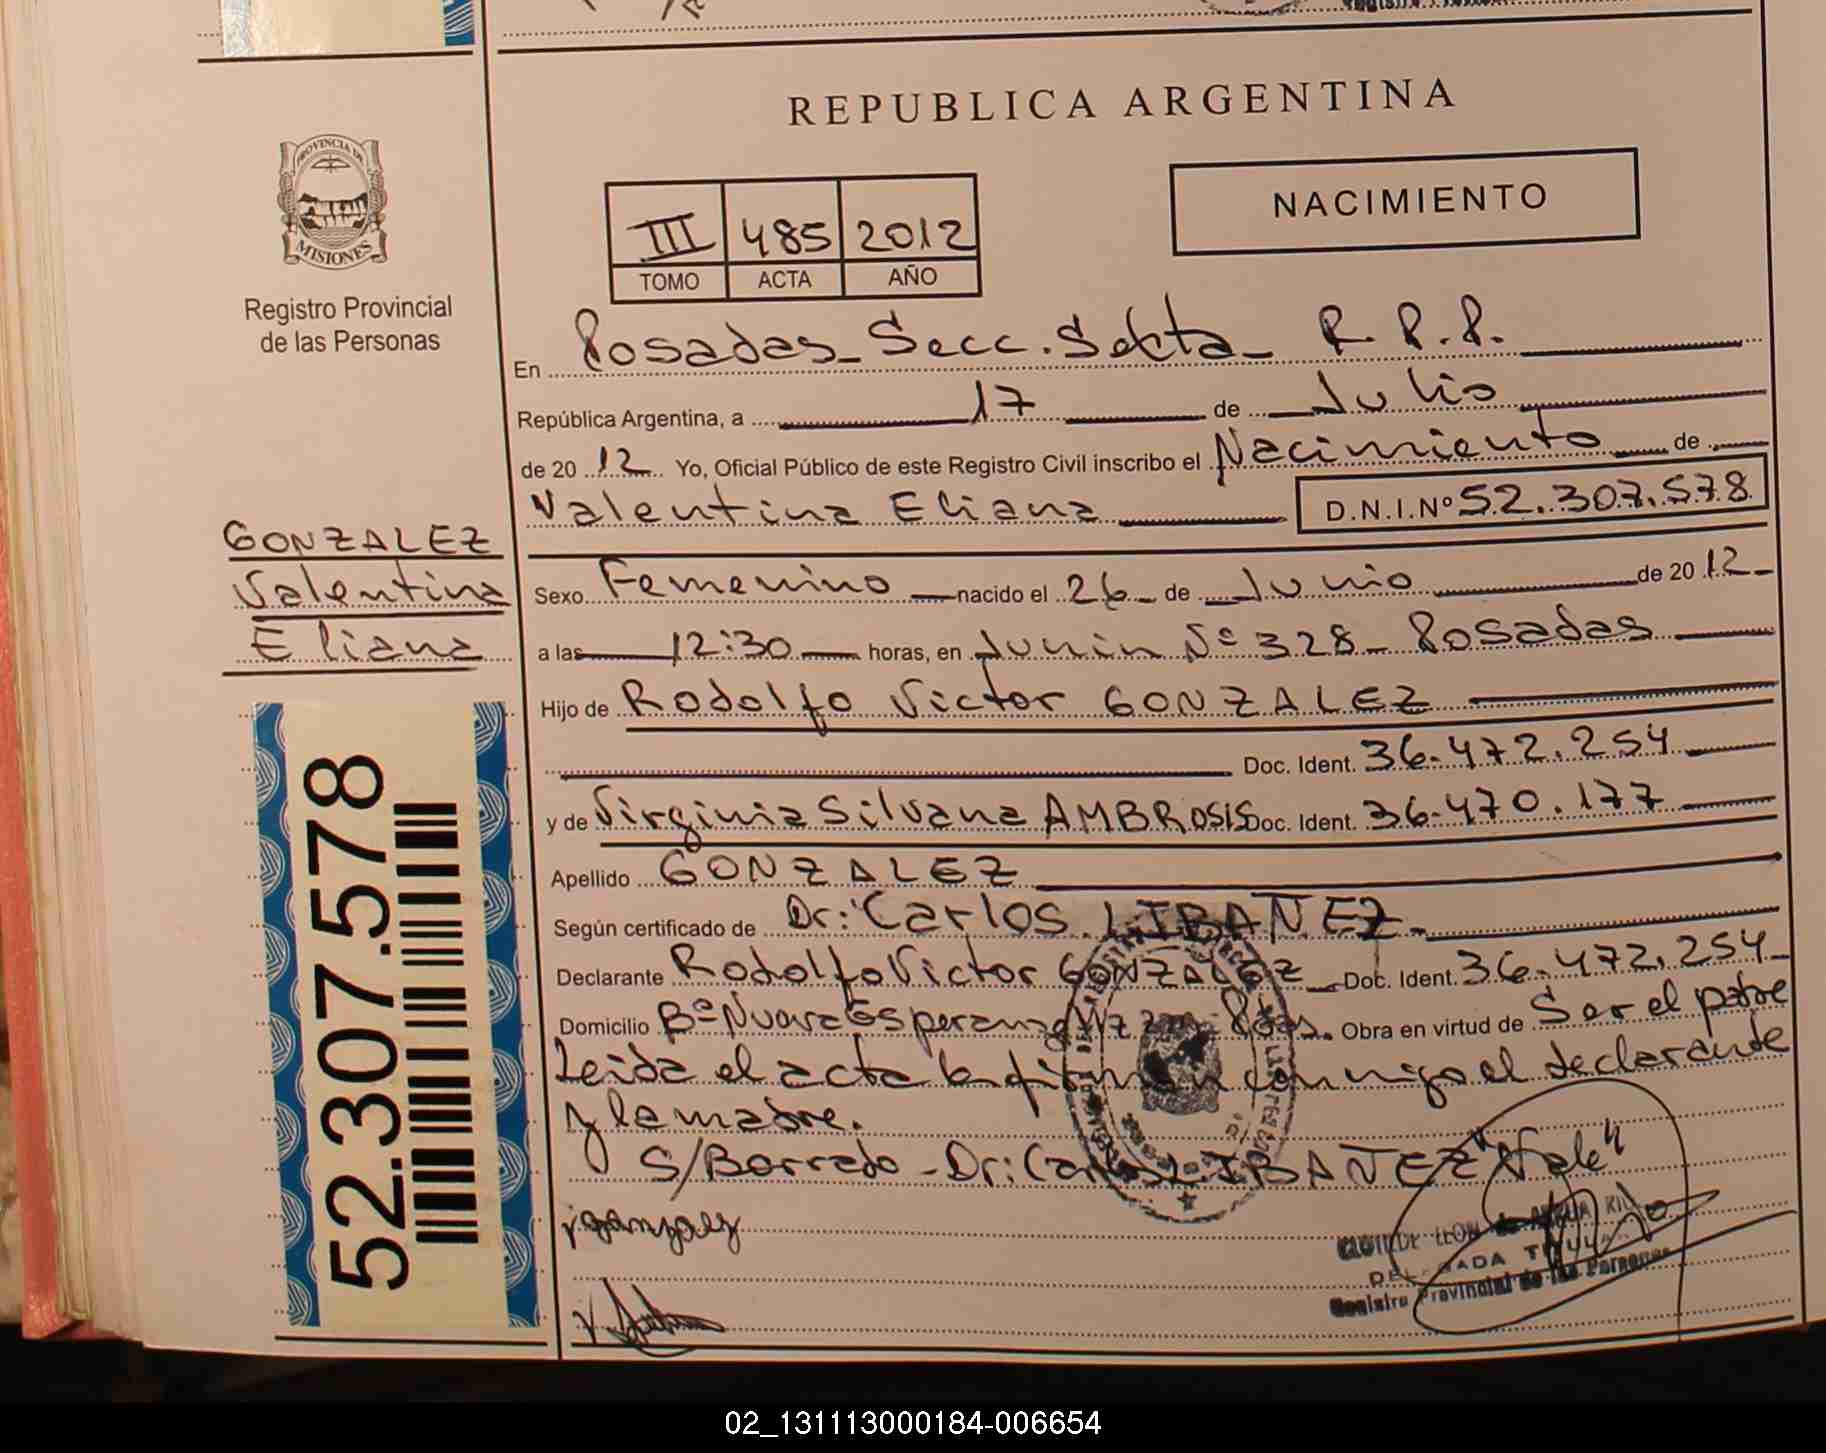 REPUBLICA ARGENTINA
PROVINCIA DE
MISIONES
Registro Provincial
de las Personas
NACIMIENTO
III 485 2012
TOMO ACTA AÑO
En Posadas - Secc. Sexta - R. P. P.
República Argentina, a 17 de Julio
de 20 12 Yo, Oficial Público de este Registro Civil inscribo el Nacimiento de
Valentina Eliana D.N.I.Nº 52.307.578
GONZALEZ
Valentina
Eliana
Sexo Femenino nacido el 26 de Junio de 20 12
a las 12:30 horas, en Junin Nº 328 - Posadas
Hijo de Rodolfo Victor GONZALEZ
Doc. Ident. 36.472.254
y de Virginia Silvana AMBROSIS Doc. Ident. 36.470.177
Apellido GONZALEZ
Según certificado de Dr: Carlos L. IBAÑEZ
Declarante Rodolfo Victor GONZALEZ Doc. Ident. 36.472.254
Domicilio Bº Nueva Esperanza Mz Pdas. Obra en virtud de Ser el padre
Leida el acta la firman conmigo el declarante
y la madre.
S/Borrado - Dr: Carlos L. IBAÑEZ "Vale"
52.307.578
LEON de
DELEGADA TITULAR
Registro Provincial de las Personas
02_131113000184-006654